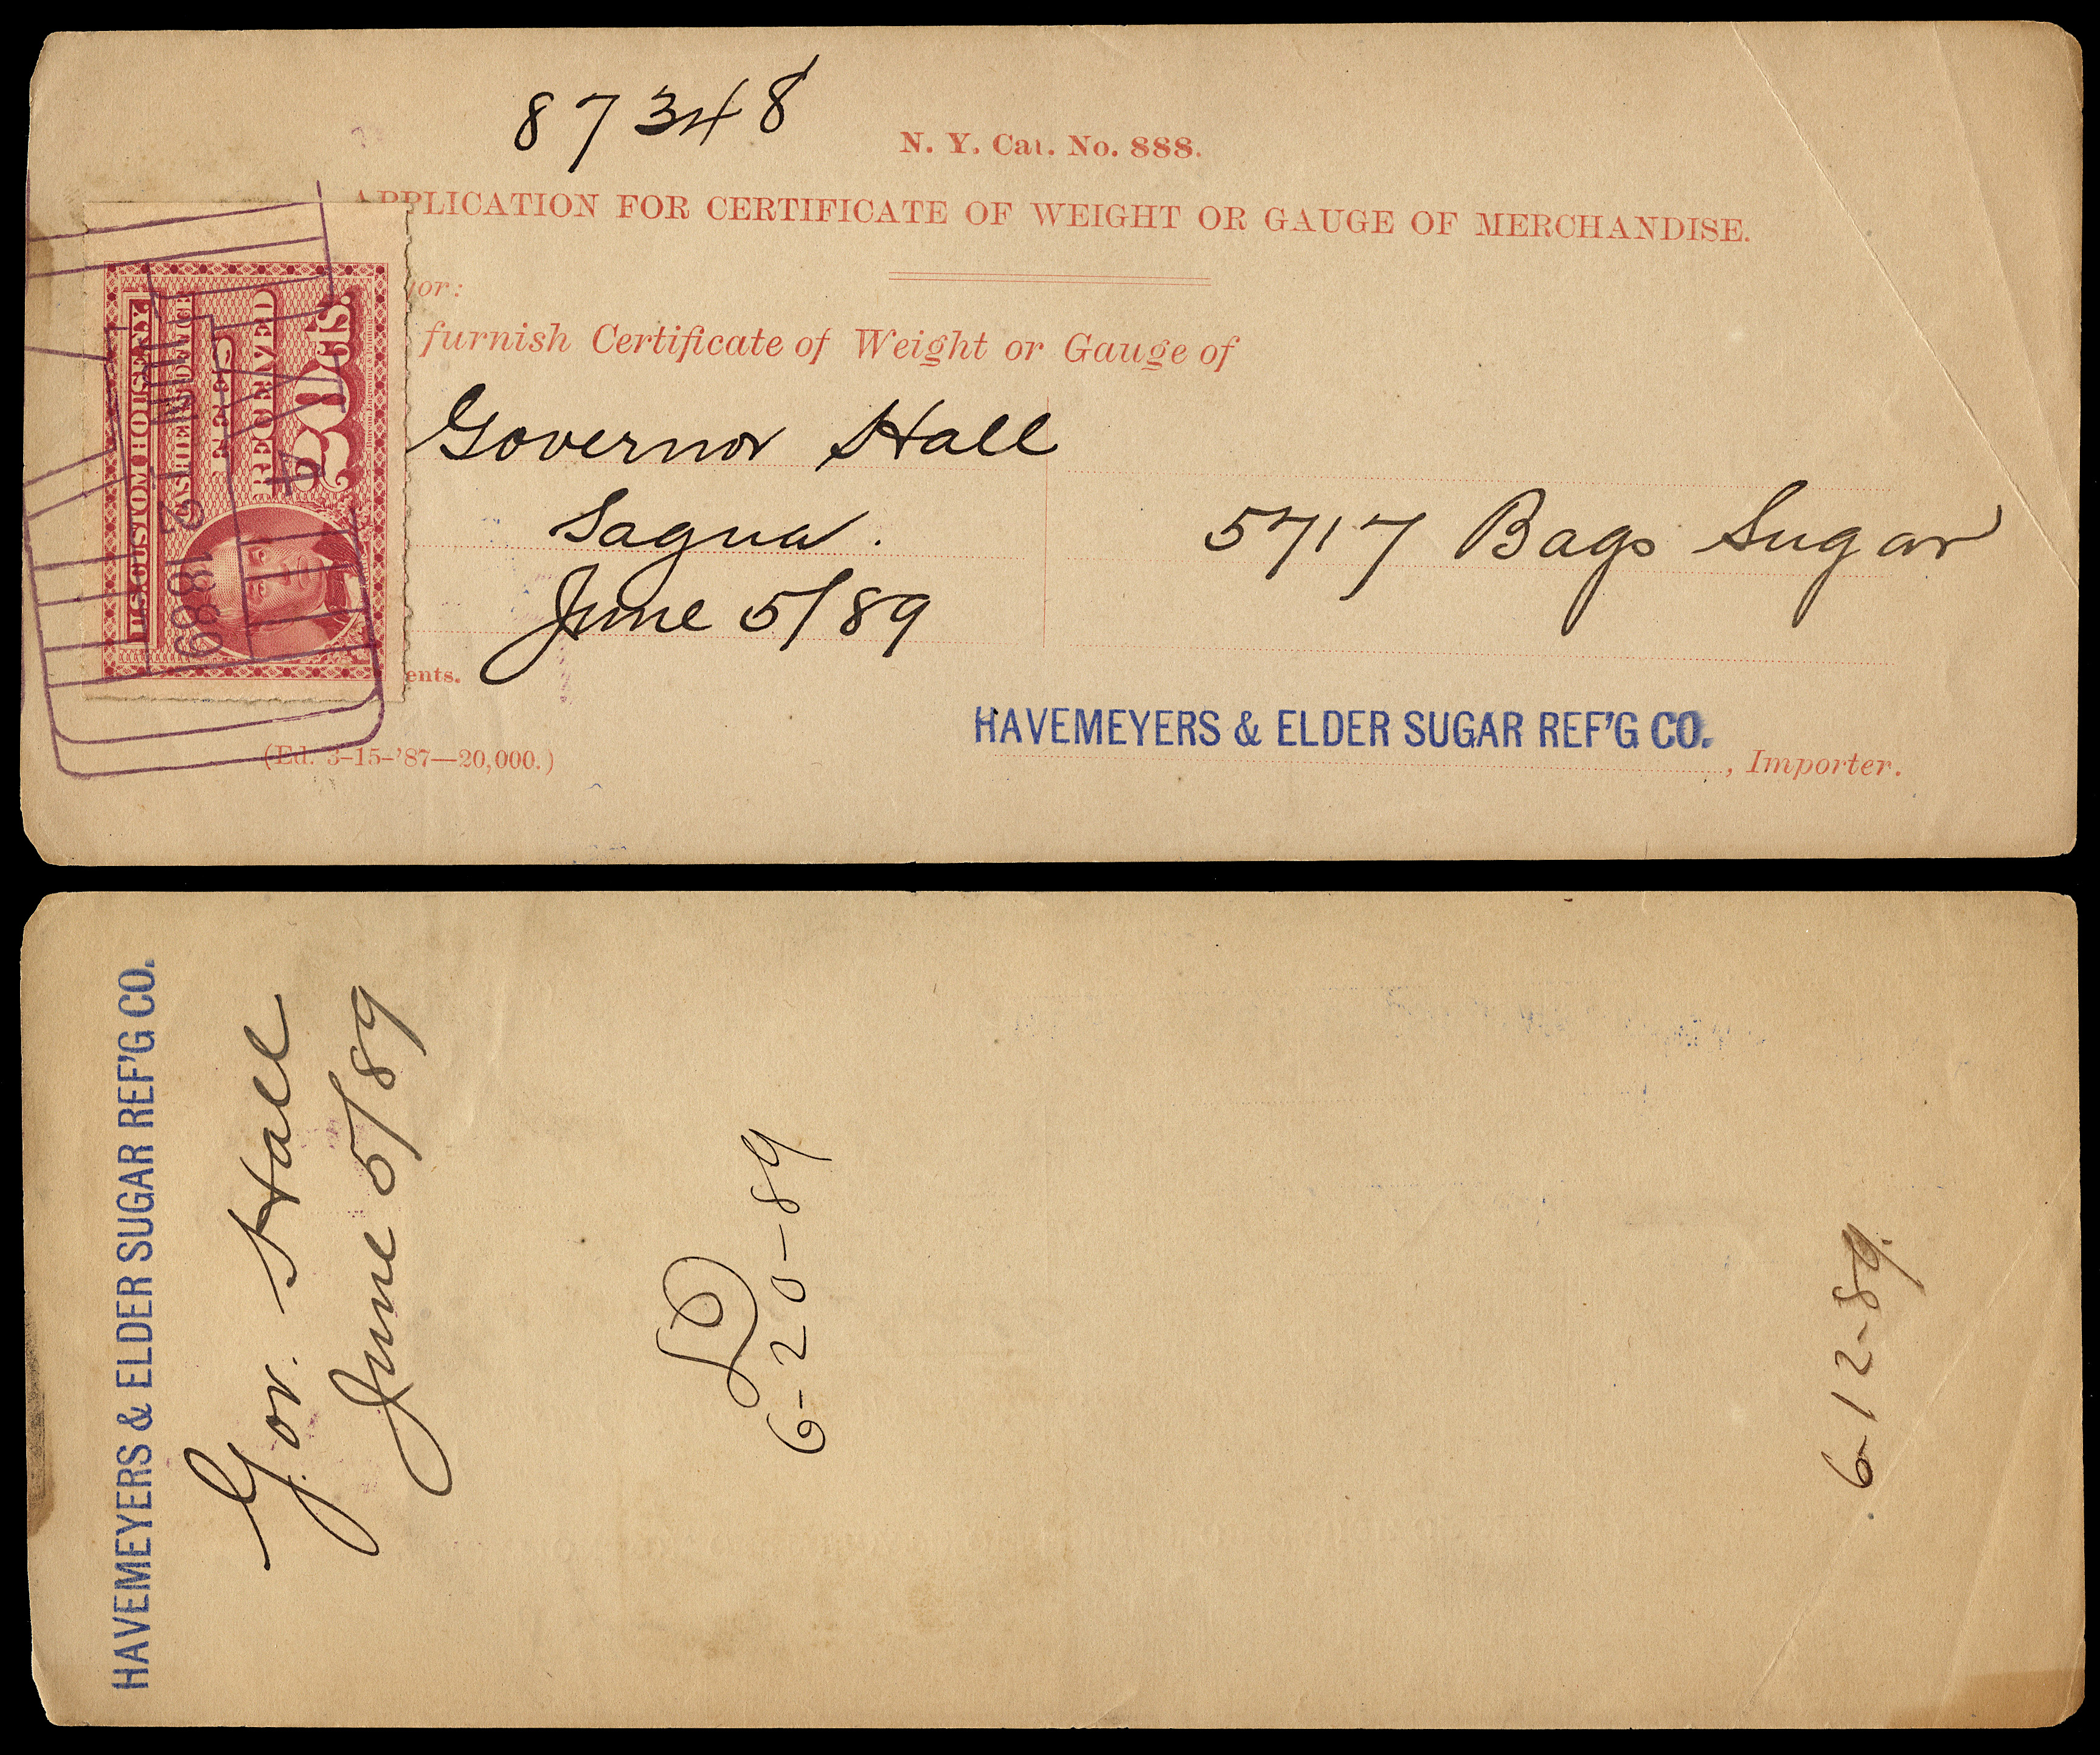 87348
N. Y. Cat. No. 888.
APPLICATION FOR CERTIFICATE OF WEIGHT OR GAUGE OF MERCHANDISE.
or:
furnish Certificate of Weight or Gauge of
Governor Hall
Sagua.
5717 Bags Sugar
June 5/89
ents.
HAVEMEYERS & ELDER SUGAR REF'G CO.
, Importer.
(Ed. 3-15-'87—20,000.)
U.S. CUSTOM HOUSE N.Y.
CASHIERS OFFICE
FEES
RECEIVED
20 Cts.
JUN 12 1889
HAVEMEYERS & ELDER SUGAR REF'G CO.
Gov. Hall
June 5/89
6-20-89
6-12-89.